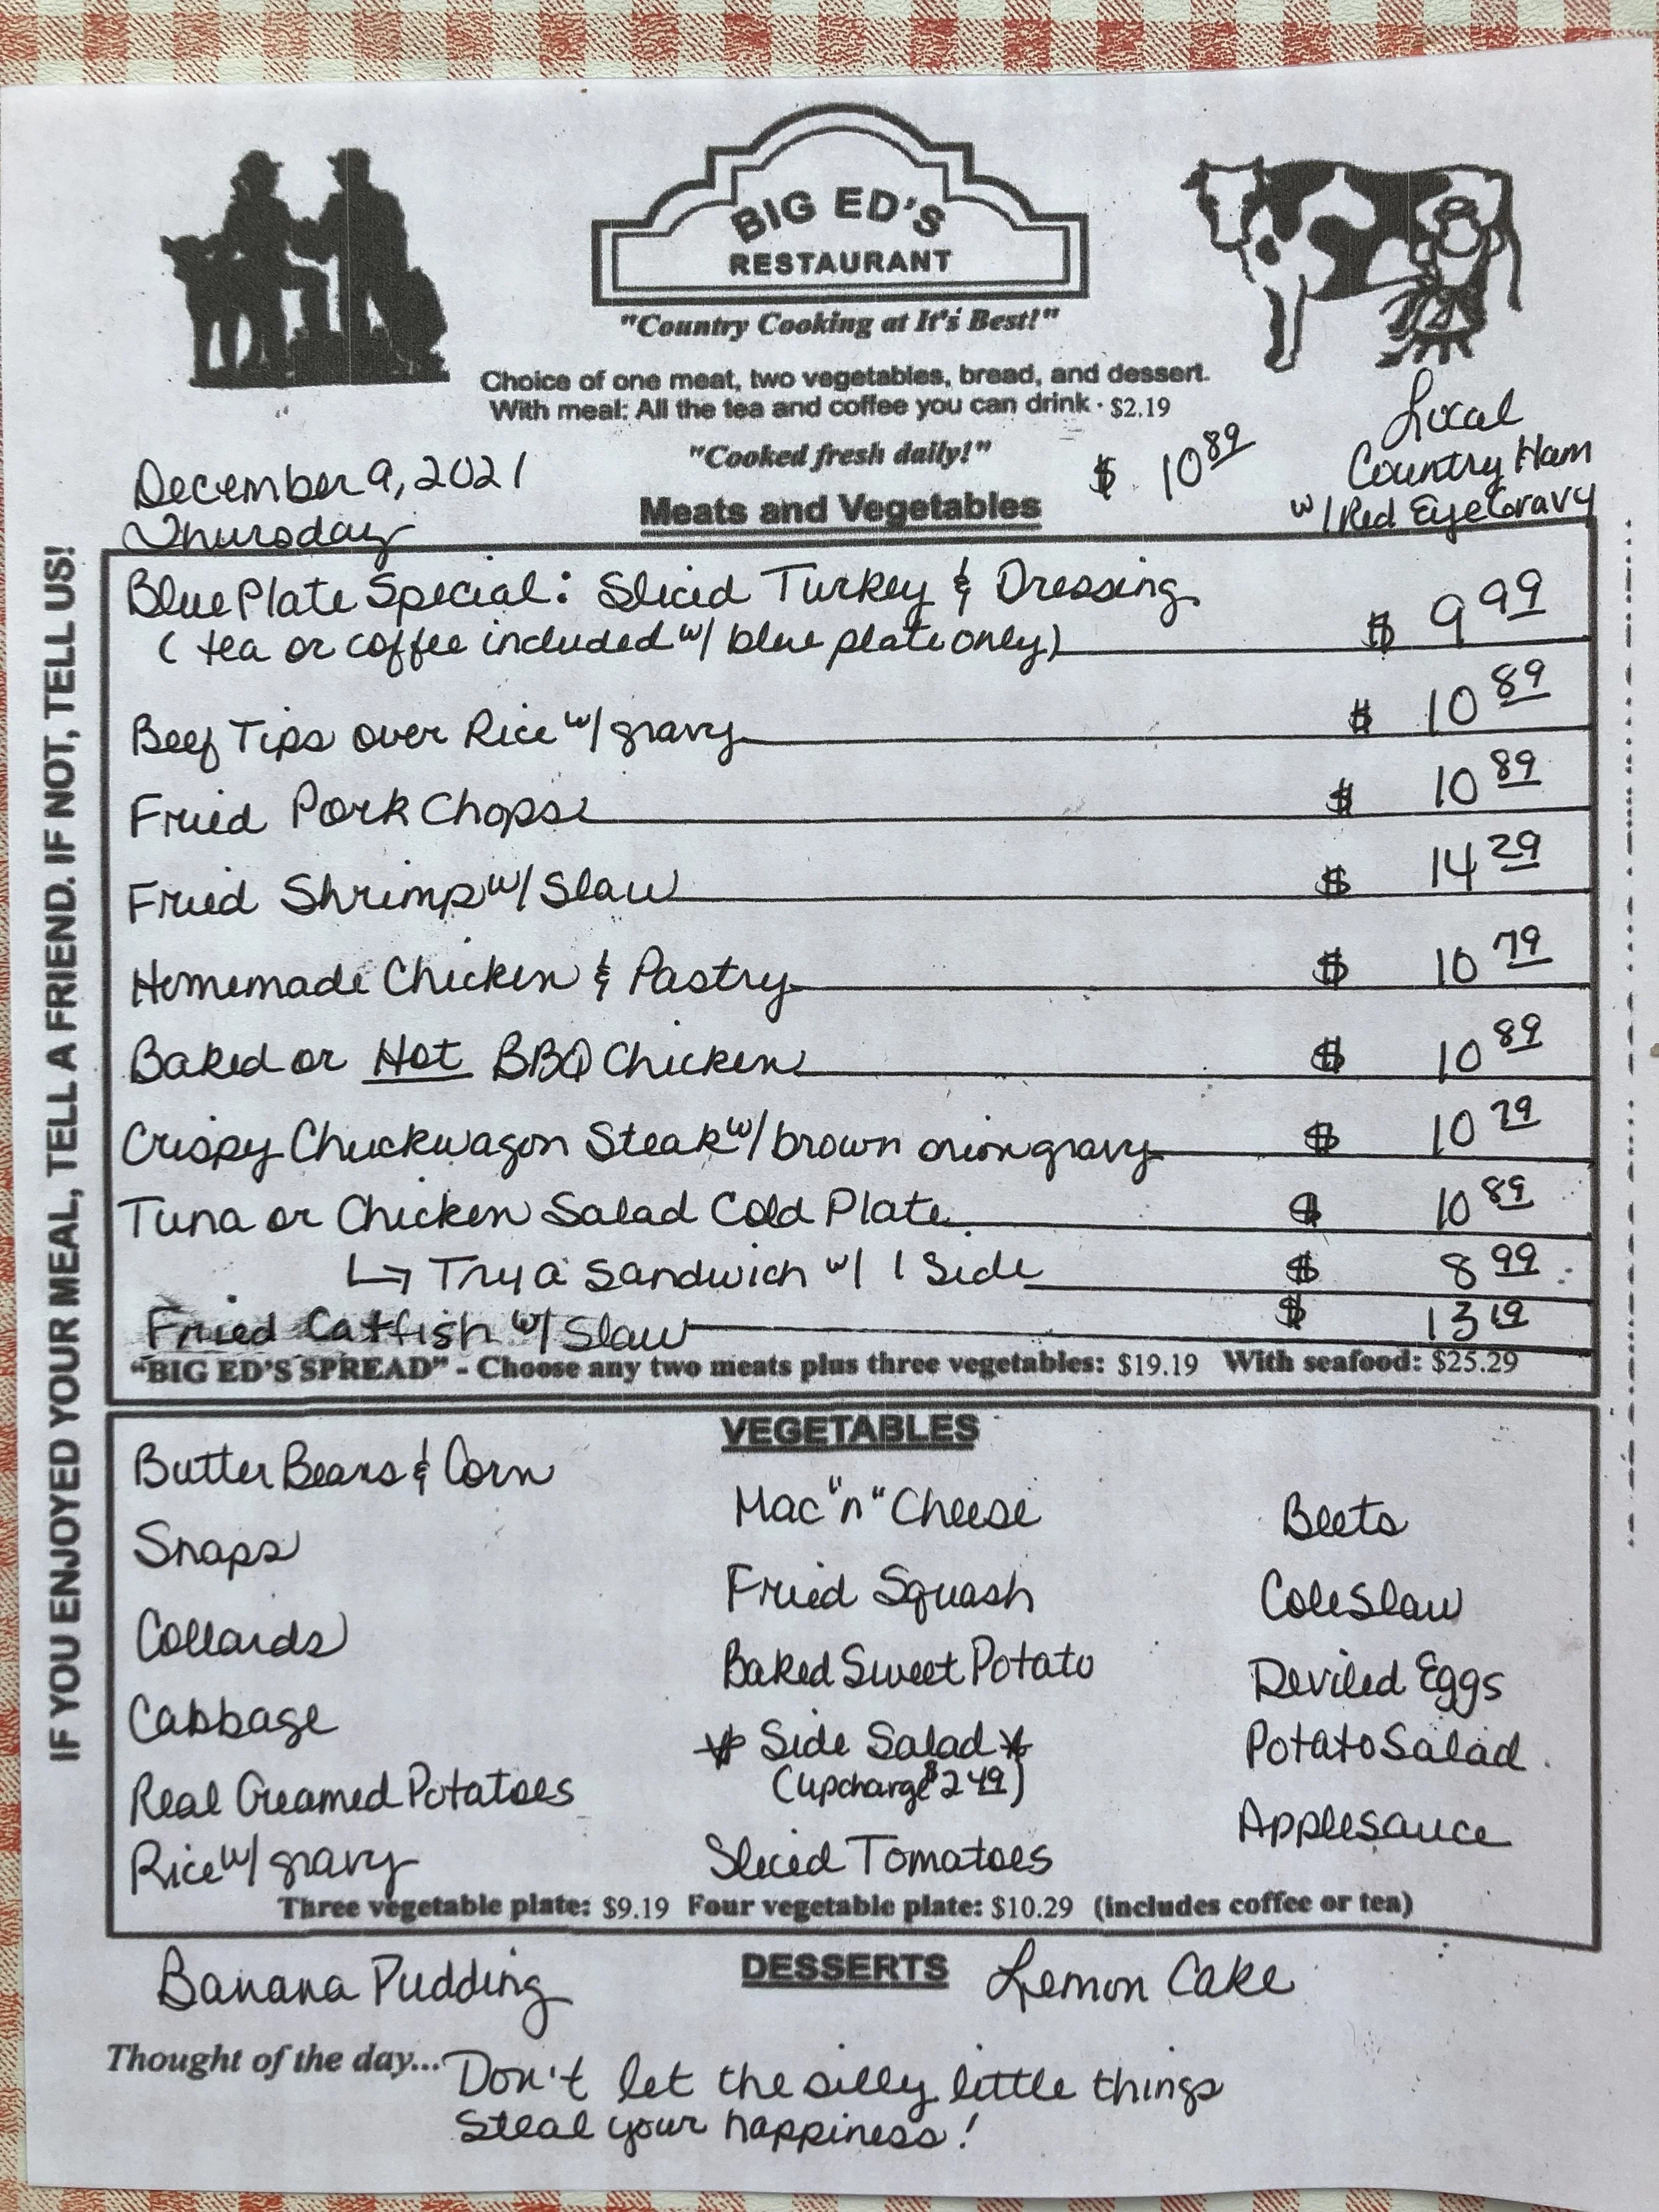 BIG ED'S
RESTAURANT
"Country Cooking at It's Best!"
Choice of one meat, two vegetables, bread, and dessert.
With meal: All the tea and coffee you can drink · $2.19
"Cooked fresh daily!"
December 9, 2021
Thursday
$ 10 89
Local
Country Ham
w/ Red Eye Gravy
Meats and Vegetables
Blue Plate Special: Sliced Turkey & Dressing
(tea or coffee included w/ blue plate only) $ 9 99
Beef Tips over Rice w/ gravy $ 10 89
Fried Pork Chops $ 10 89
Fried Shrimp w/ Slaw $ 14 29
Homemade Chicken & Pastry $ 10 79
Baked or Hot BBQ Chicken $ 10 89
Crispy Chuckwagon Steak w/ brown onion gravy $ 10 79
Tuna or Chicken Salad Cold Plate $ 10 89
↳ Try a Sandwich w/ 1 Side $ 8 99
Fried Catfish w/ Slaw $ 13 19
"BIG ED'S SPREAD" - Choose any two meats plus three vegetables: $19.19 With seafood: $25.29
VEGETABLES
Butter Beans & Corn
Snaps
Collards
Cabbage
Real Creamed Potatoes
Rice w/ gravy
Mac "n" Cheese
Fried Squash
Baked Sweet Potato
* Side Salad *
(upcharge $2 49)
Sliced Tomatoes
Beets
Cole Slaw
Deviled Eggs
Potato Salad
Applesauce
Three vegetable plate: $9.19 Four vegetable plate: $10.29 (includes coffee or tea)
DESSERTS
Banana Pudding
Lemon Cake
Thought of the day... Don't let the silly little things
Steal your happiness!
IF YOU ENJOYED YOUR MEAL, TELL A FRIEND. IF NOT, TELL US!